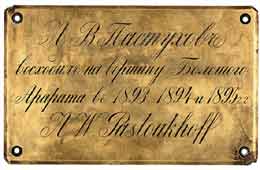 А В Пастуховъ
восходилъ на вершину Большого
Арарата въ 1893, 1894 и 1895 гг
A W Pastoukhoff